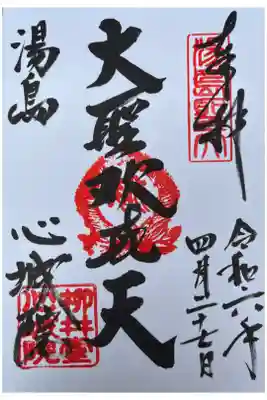 奉拝
令和六年
四月二十七日
大聖歓喜天
湯島
心城院
柳井堂